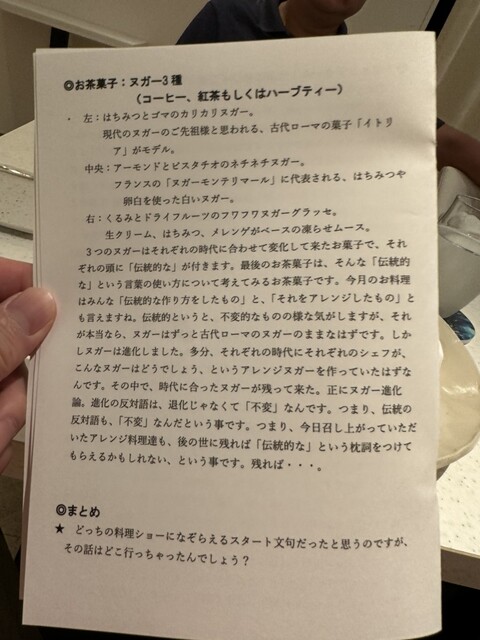 ◎お茶菓子：ヌガー3種
（コーヒー、紅茶もしくはハーブティー）
・ 左：はちみつとゴマのカリカリヌガー。
現代のヌガーのご先祖様と思われる、古代ローマの菓子「イトリ
ア」がモデル。
中央：アーモンドとピスタチオのネチネチヌガー。
フランスの「ヌガーモンテリマール」に代表される、はちみつや
卵白を使った白いヌガー。
右：くるみとドライフルーツのフワフワヌガーグラッセ。
生クリーム、はちみつ、メレンゲがベースの凍らせムース。
３つのヌガーはそれぞれの時代に合わせて変化して来たお菓子で、それ
ぞれの頭に「伝統的な」が付きます。最後のお茶菓子は、そんな「伝統的
な」という言葉の使い方について考えてみるお茶菓子です。今月のお料理
はみんな「伝統的な作り方をしたもの」と、「それをアレンジしたもの」と
も言えますね。伝統的というと、不変的なものの様な気がしますが、それ
が本当なら、ヌガーはずっと古代ローマのヌガーのままなはずです。しか
しヌガーは進化しました。多分、それぞれの時代にそれぞれのシェフが、
こんなヌガーはどうでしょう、というアレンジヌガーを作っていたはずな
んです。その中で、時代に合ったヌガーが残って来た。正にヌガー進化
論。進化の反対語は、退化じゃなくて「不変」なんです。つまり、伝統の
反対語も、「不変」なんだという事です。つまり、今日召し上がっていただ
いたアレンジ料理達も、後の世に残れば「伝統的な」という枕詞をつけて
もらえるかもしれない、という事です。残れば・・・。
◎まとめ
★ どっちの料理ショーになぞらえるスタート文句だったと思うのですが、
その話はどこ行っちゃったんでしょう？